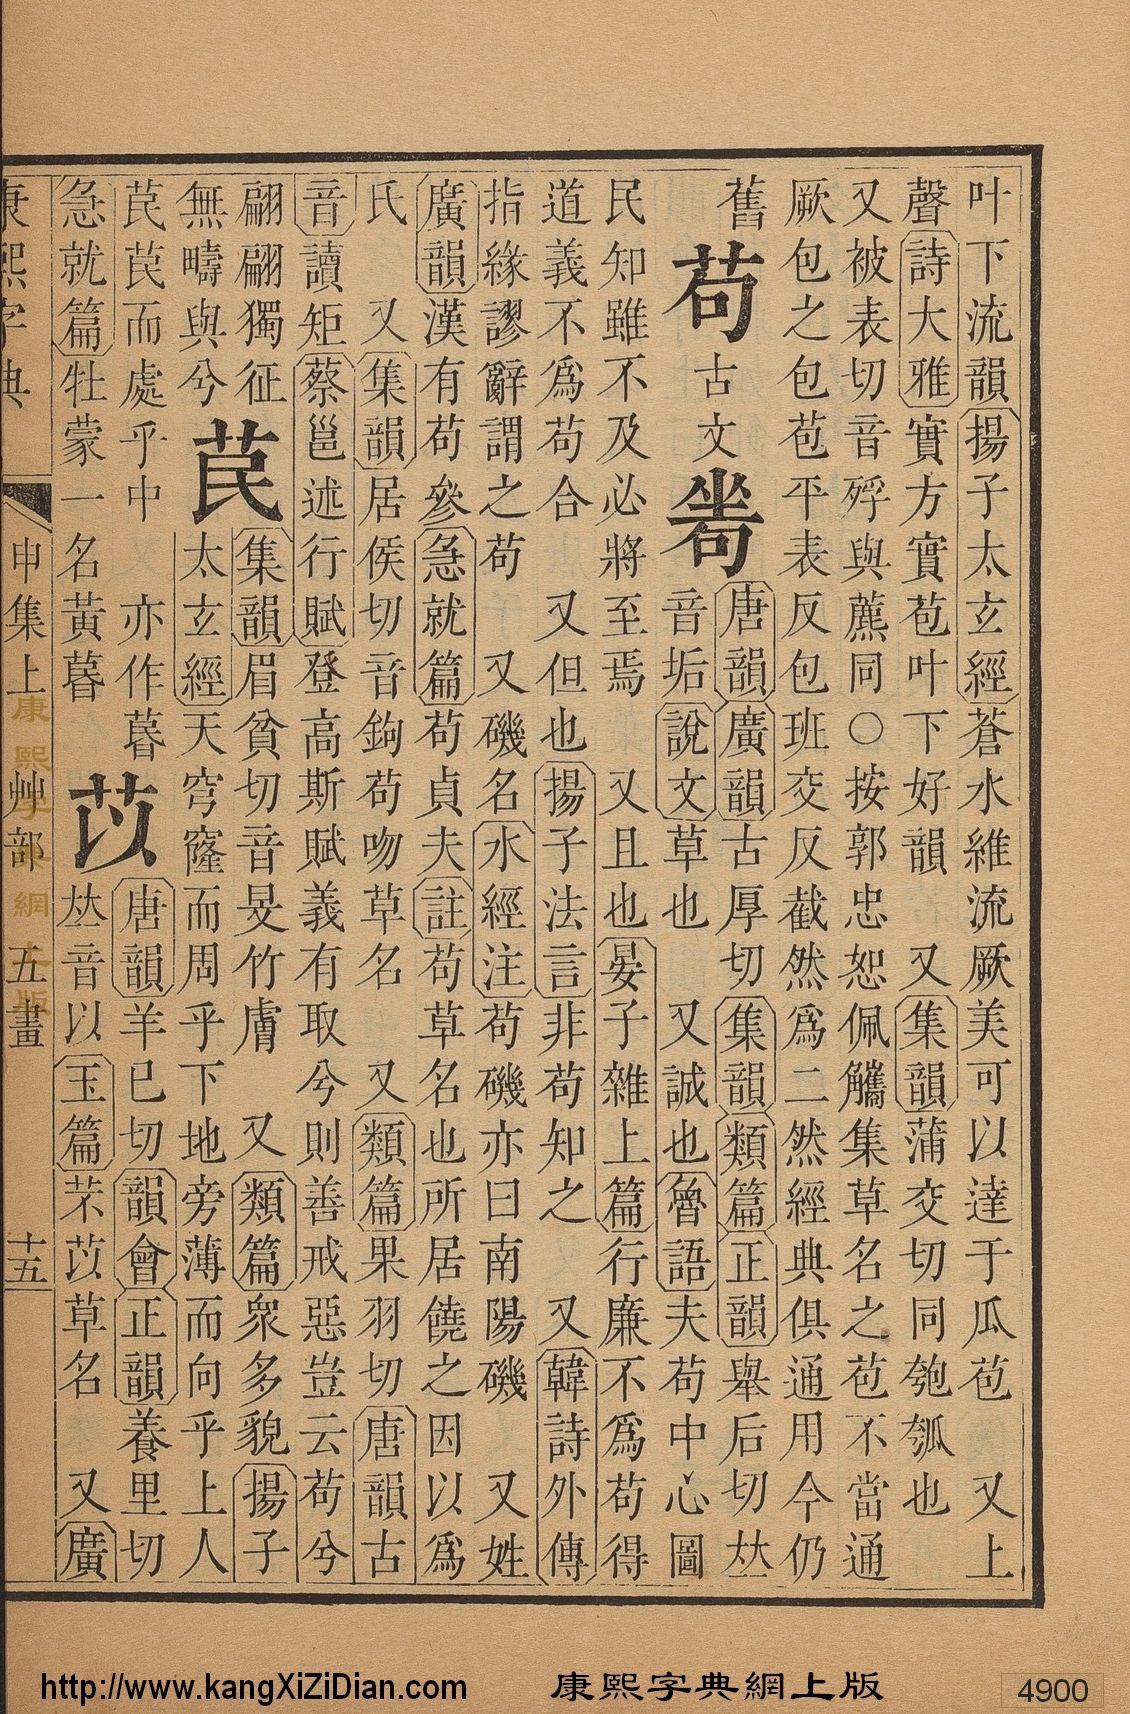 叶下流韻揚子太玄經蒼水維流厥美可以達于瓜苞 又上
聲詩大雅實方實苞叶下好韻 又集韻蒲交切同匏瓠也
又被表切音殍與藨同○按郭忠恕佩觿集草名之苞不當通
厥包之包苞平表反包班交反截然爲二然經典俱通用今仍
舊
苟
古文
唐韻廣韻古厚切集韻類篇正韻舉后切𠀤
音垢說文草也 又誠也魯語夫苟中心圖
民知雖不及必將至焉 又且也晏子雜上篇行廉不爲苟得
道義不爲苟合 又但也揚子法言非苟知之 又韓詩外傳
指緣謬辭謂之苟 又磯名水經注苟磯亦曰南陽磯 又姓
廣韻漢有苟參急就篇苟貞夫註苟草名也所居饒之因以爲
氏 又集韻居侯切音鉤苟吻草名 又類篇果羽切唐韻古
音讀矩蔡邕述行賦登高斯賦義有取兮則善戒惡豈云苟兮
翩翩獨征
無疇與兮
苠
集韻眉貧切音旻竹膚 又類篇衆多貌揚子
太玄經天穹窿而周乎下地旁薄而向乎上人
苠苠而處乎中 亦作暮
急就篇牡蒙一名黃暮
苡
唐韻羊已切韻會正韻養里切
𠀤音以玉篇芣苡草名 又廣
康熙字典 申集上 艸部 五畫 十五
康熙字典網上版
http://www.kangXiZiDian.com 康熙字典網上版 4900